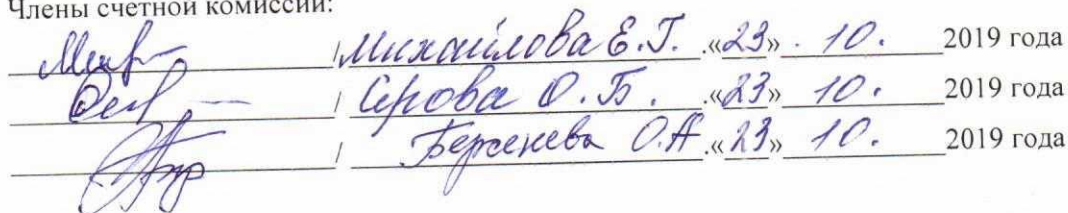 Члены счетной комиссии:
/ Михайлова Е.Г. «23» . 10. 2019 года
/ Серова О.Б. «23» 10. 2019 года
/ О.А «23» 10. 2019 года